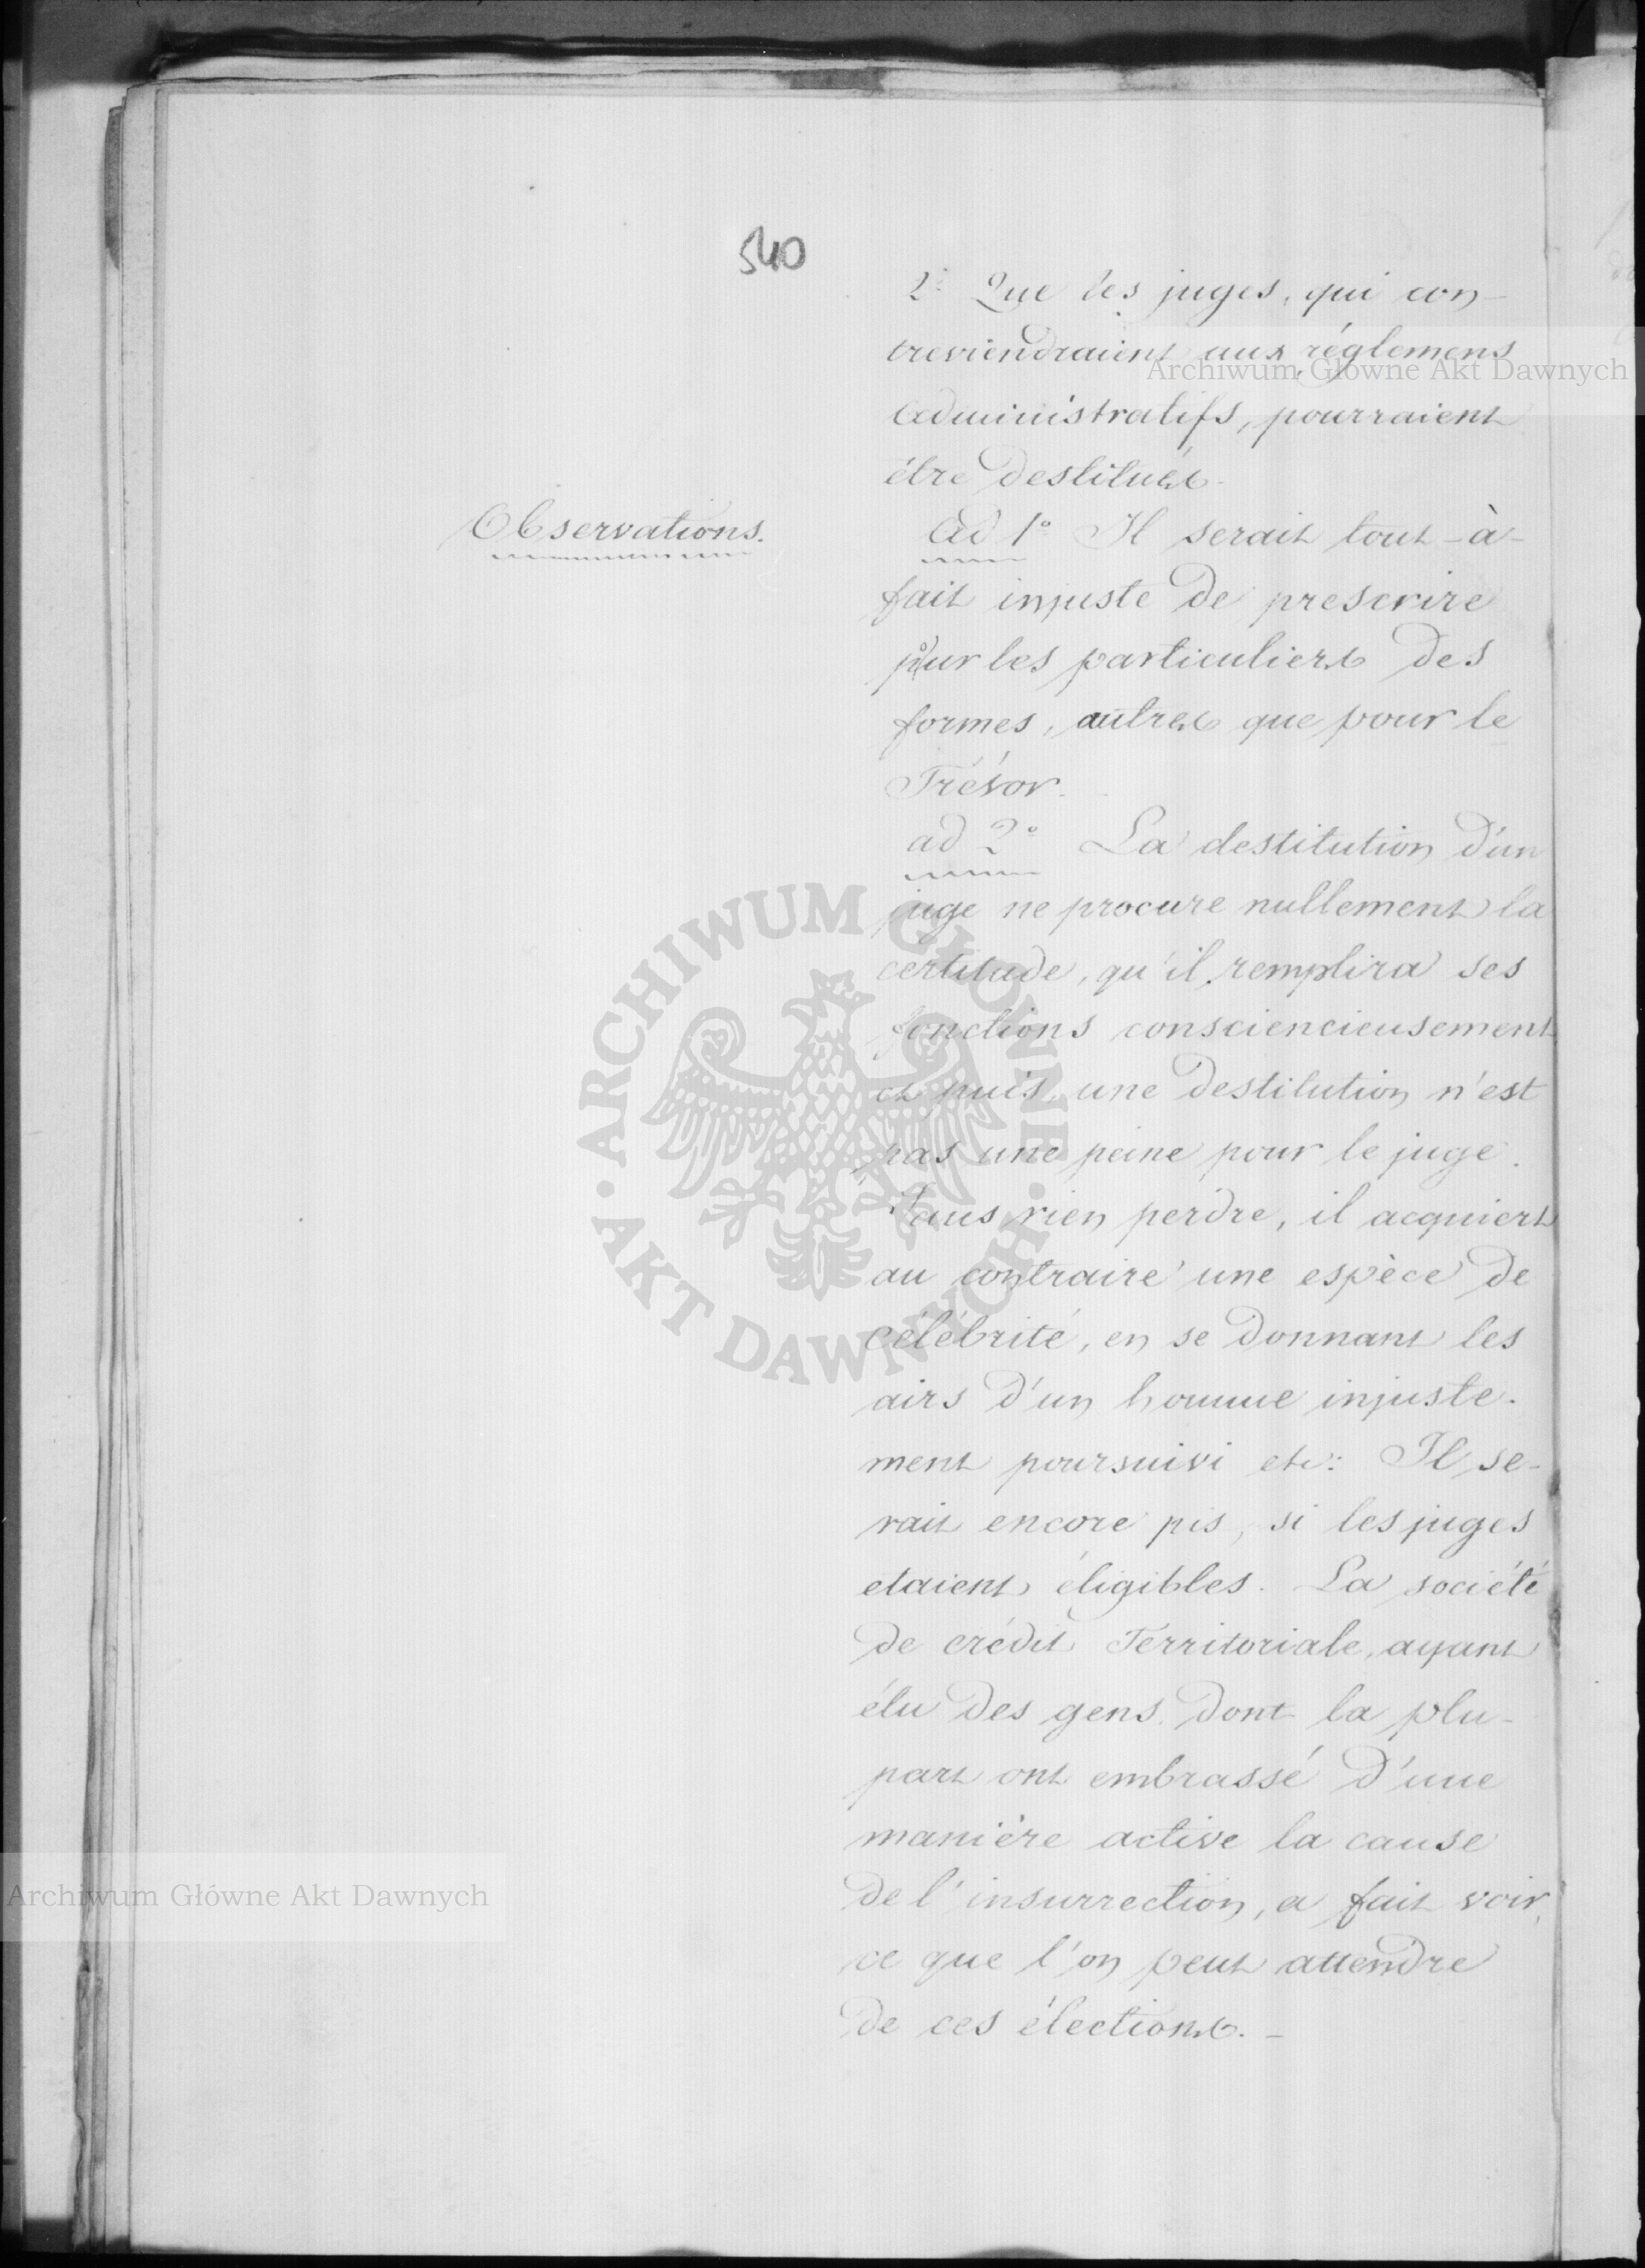 540
2° Que les juges, qui con-
treviendraient aux réglemens
Archiwum Główne Akt Dawnych
administratifs, pourraient
être destitués.
Observations.
ad 1° Il serait tout-à-
fait injuste de prescrire
pour les particuliers des
formes, autres que pour le
Trésor.
ad 2° La destitution d'un
juge ne procure nullement la
certitude, qu'il remplira ses
fonctions consciencieusement
et puis une destitution n'est
pas une peine pour le juge.
Sans rien perdre, il acquiert
au contraire une espèce de
célébrité, en se donnant les
airs d'un homme injuste-
ment poursuivi etc: Il se-
rait encore pis, si les juges
etaient éligibles. La société
de crédit Territoriale, ayant
élu des gens dont la plu-
part ont embrassé d'une
manière active la cause
de l'insurrection, a fait voir,
ce que l'on peut attendre
de ces élections. -
ARCHIWUM GŁÓWNE AKT DAWNYCH
Archiwum Główne Akt Dawnych